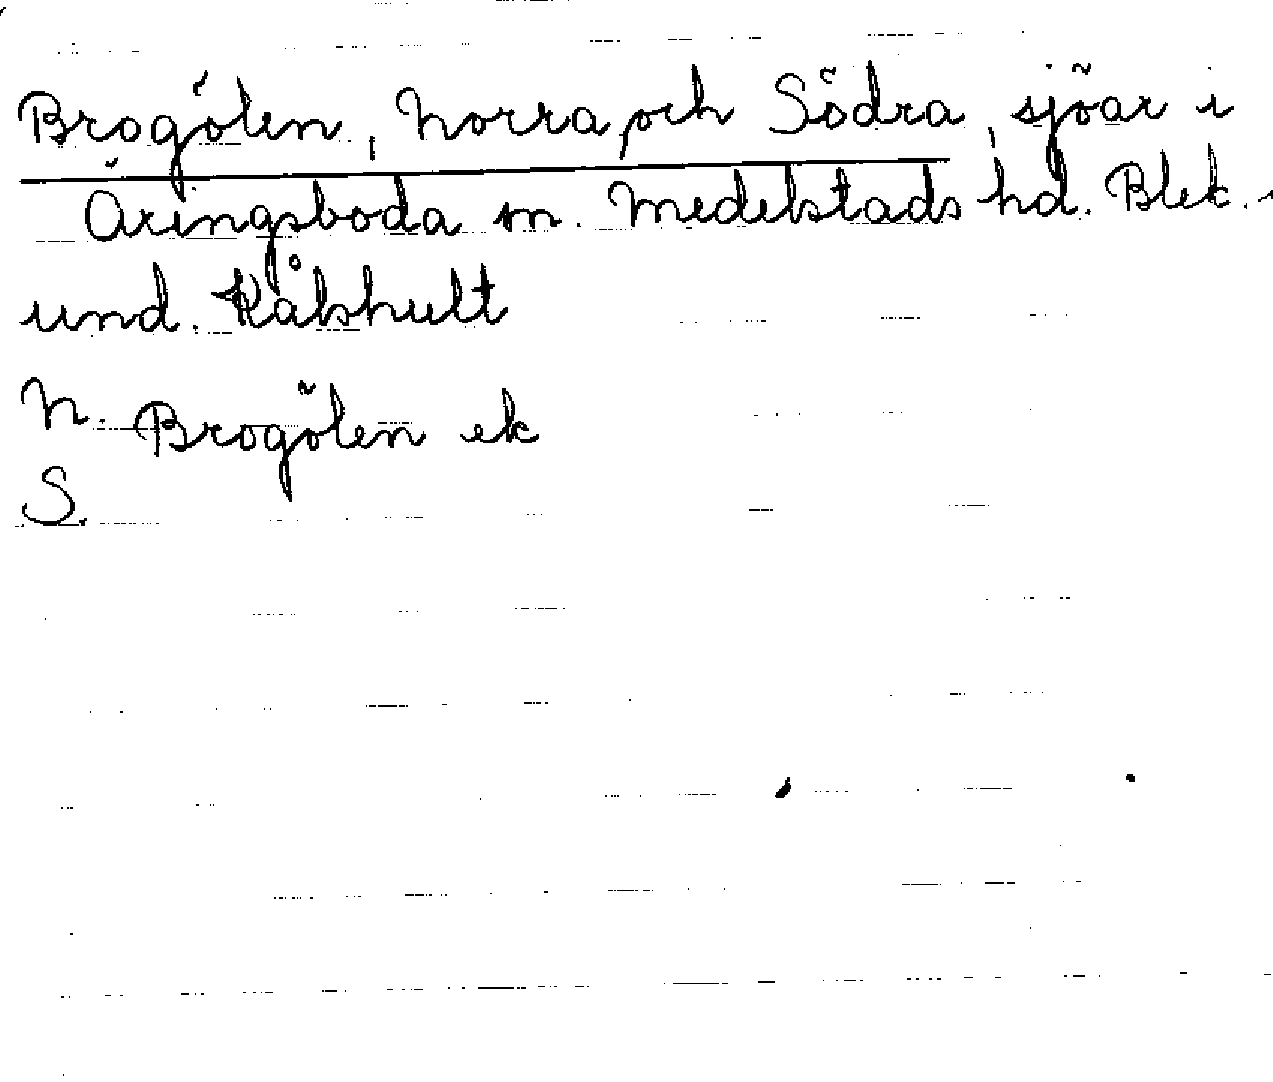 Brogölen, Norra och Södra, sjöar i
Öringsboda sn. Medelstads hd. Blek.
und. Kålshult
N. Brogölen ek
S.